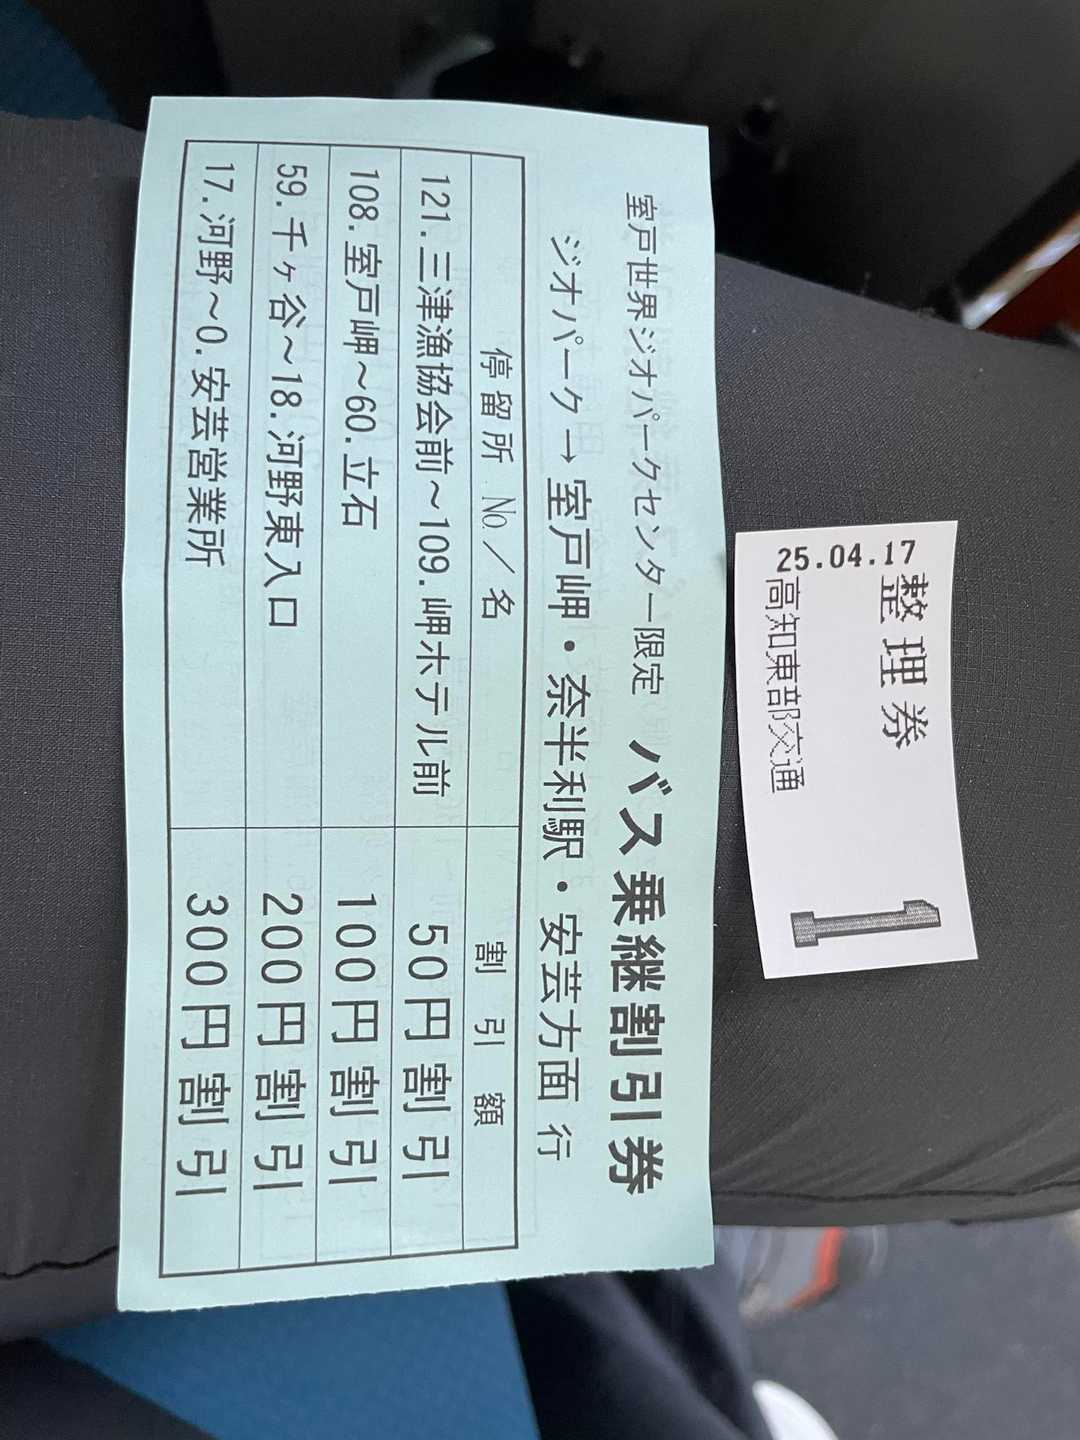 室戸世界ジオパークセンター限定 バス乗継割引券
ジオパーク→室戸岬・奈半利駅・安芸方面 行
停留所 №／名 割引額
121.三津漁協会前～109.岬ホテル前 50円割引
108.室戸岬～60.立石 100円割引
59.千ヶ谷～18.河野東入口 200円割引
17.河野～0.安芸営業所 300円割引
整理券
25.04.17
高知東部交通
1